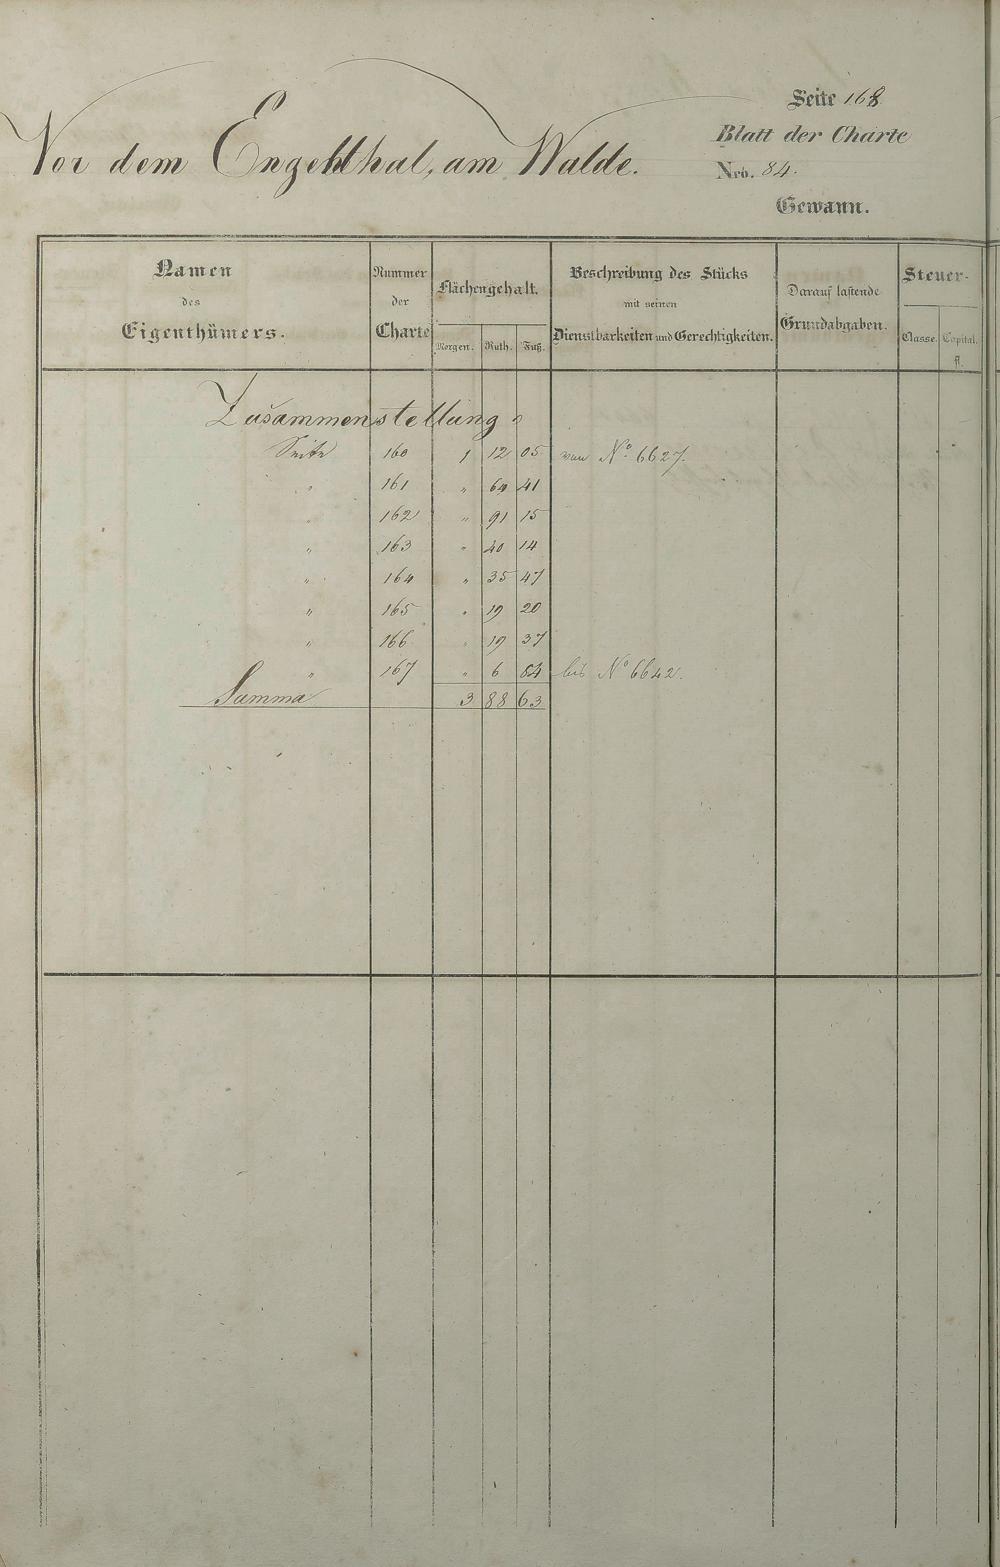 Seite 168
Blatt der Charte
Nro. 84.
Gewann.
Vor dem Engelthal, am Walde.
Namen des Eigenthümers. Nummer der Charte Flächengehalt. Morgen. Ruth. Fuß. Beschreibung des Stücks mit seinen Dienstbarkeiten und Gerechtigkeiten. Darauf lastende Grundabgaben. Steuer- Classe. Capital. fl.
Zusammenstellung
Seite 160 1 12 05 von No. 6627.
" 161 " 64 41
" 162 " 91 15
" 163 " 40 14
" 164 " 35 47
" 165 " 19 20
" 166 " 19 37
" 167 " 6 84 bis No 6642.
Summa 3 88 63